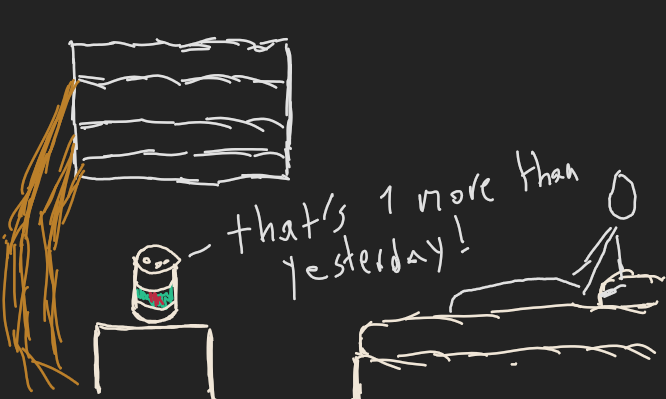 that's 1 more than
yesterday!